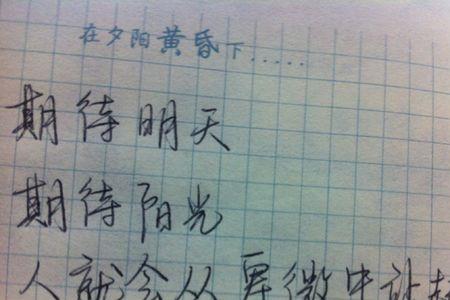 在夕阳黄昏下.....
期待明天
期待阳光
人就会从卑微中站